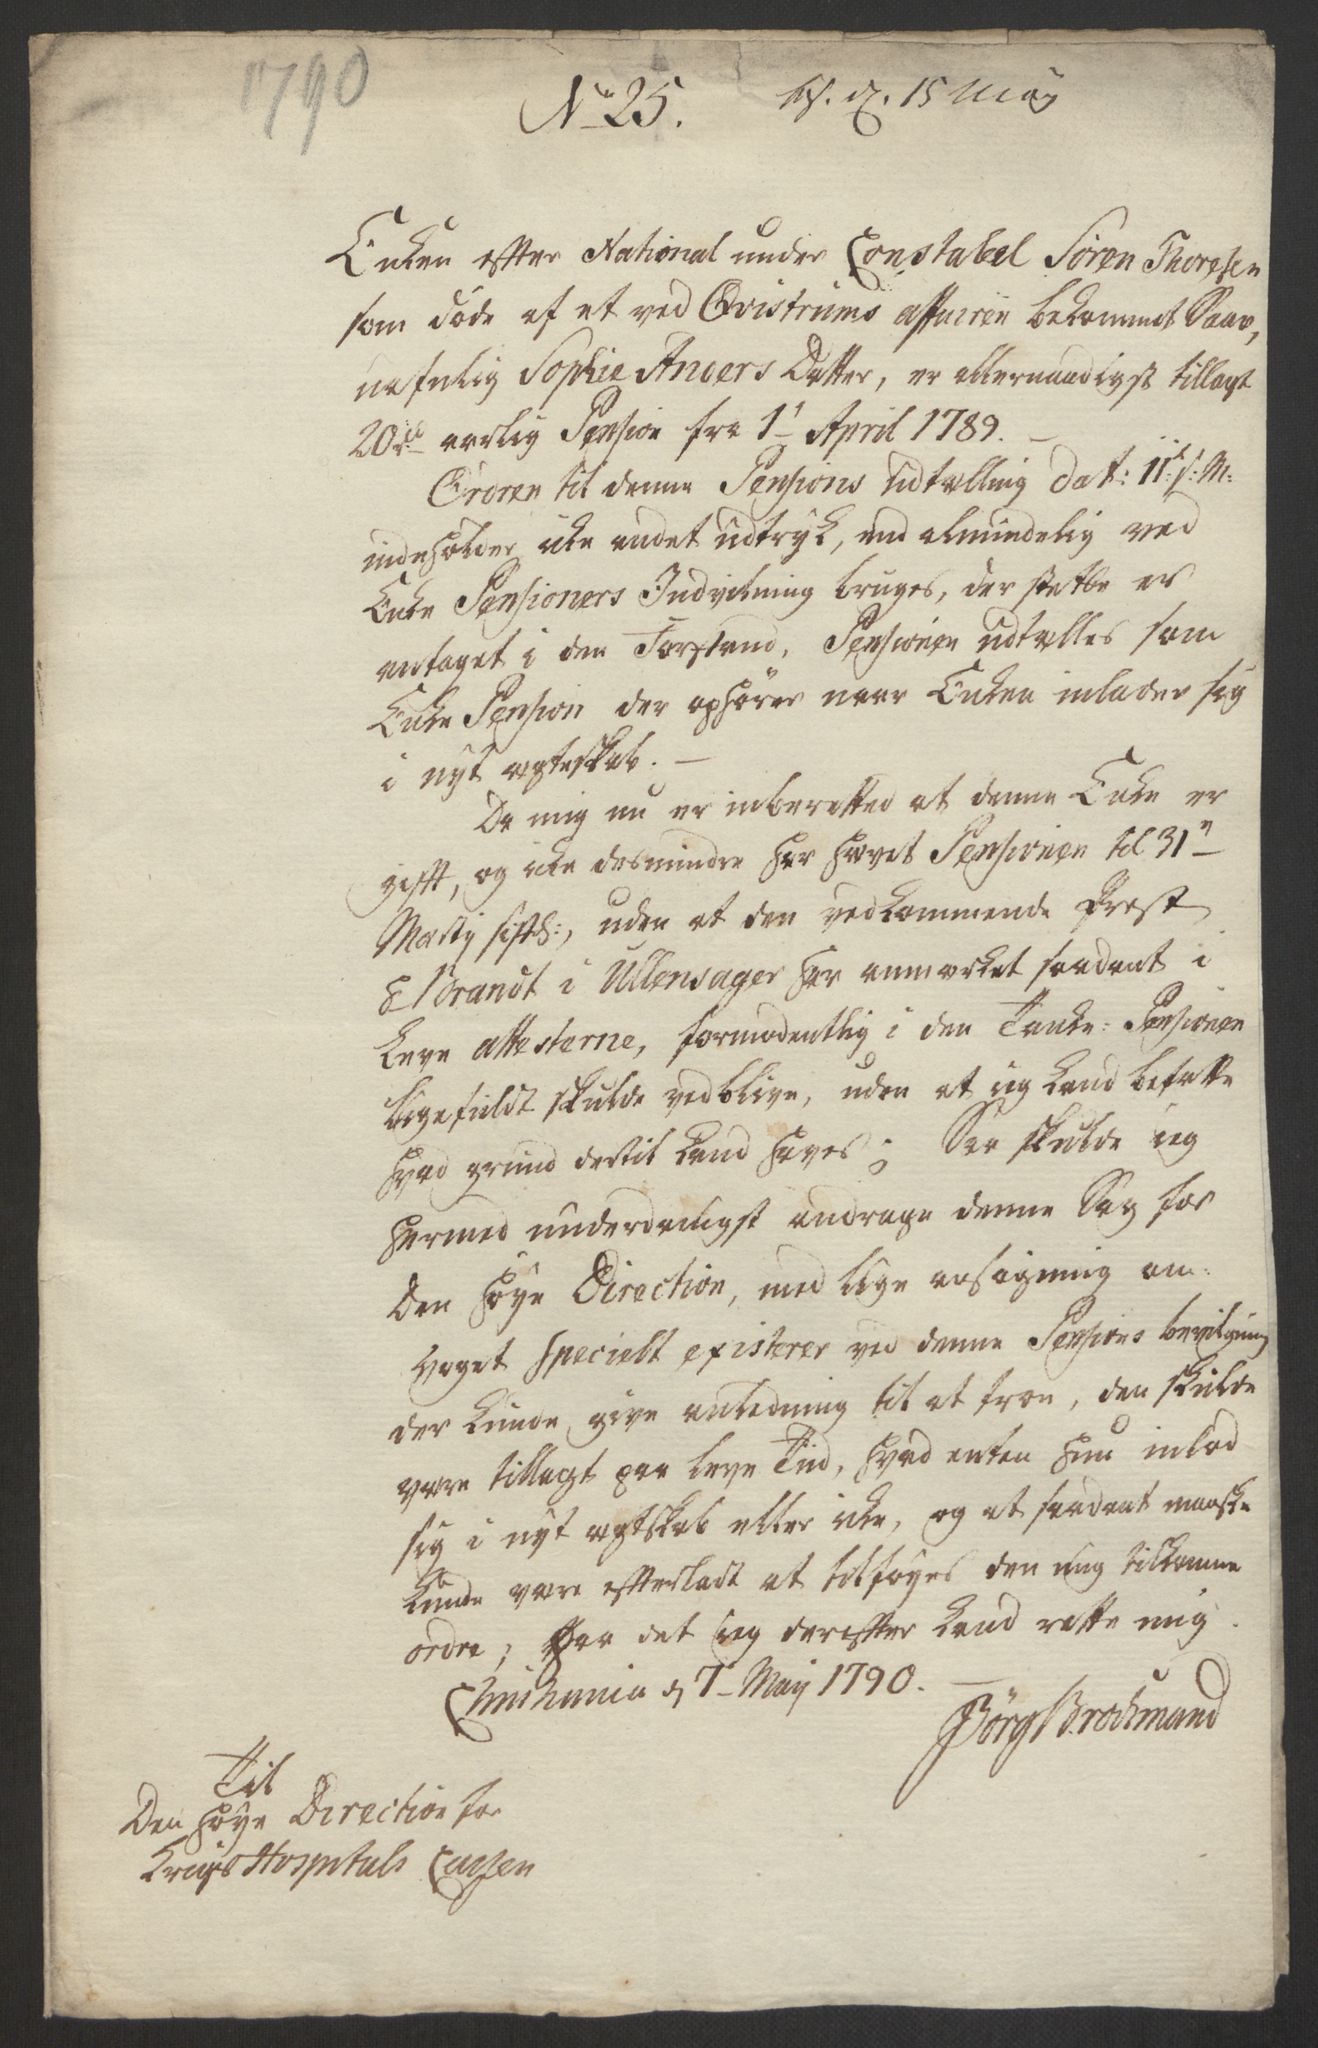 1790
No 25. bs. d. 15 Maÿ
Enken efter National under Constabel Sören Thoresen
som döde af et ved Qvistrums affairen bekommet Saar,
nafnlig Sophie Anders Datter, er allernaadigst tillagt
20 rd aarlig Pension fra 1t April 1789. —
Ordren til denne Pensions udtælling dat: 11t s: M:
indeholder icke andet udtryk, end almindelig ved
Enke Pensioners Indvilning bruges, der stedse er
antaget i den Forstand, Pensionen udtælles som
Enke Pension der ophörer naar Enken inlader sig
i nyt ægteskab. —
Da mig nu er inberetted at denne Enke er
gifft, og icke desmindre har hævet Pensionen til 31n
Martij sisth:, uden at den vedkommende Præst
H Brandt i Ullensager har anmærket saadant i
Leve attesterne, formodentlig i den Tanke: Pensionen
ligefuldt skulde vedblive, uden at ieg kand befatte
hvad grund dertil kand haves; Saa skulde ieg
hermed underdanigst andrage denne Sag for
Den höye Direction, med lige ansögning om:
noget specielt existerer ved denne Pensions bevilgning
der kunde give anledning til at troe, den skulde
være tillagt paa leve Tiid, hvad enten hun inlod
sig i nyt ægtskab eller icke, og at saadant maaske
kunde være efterladt at tilföyes den mig tilkomne
ordre; paa det ieg derefter kand rette mig.
Christiania d 7 May 1790. —
Börg Brockmand
Til
Den höye Direction for
Krigs Hospitals Cassen